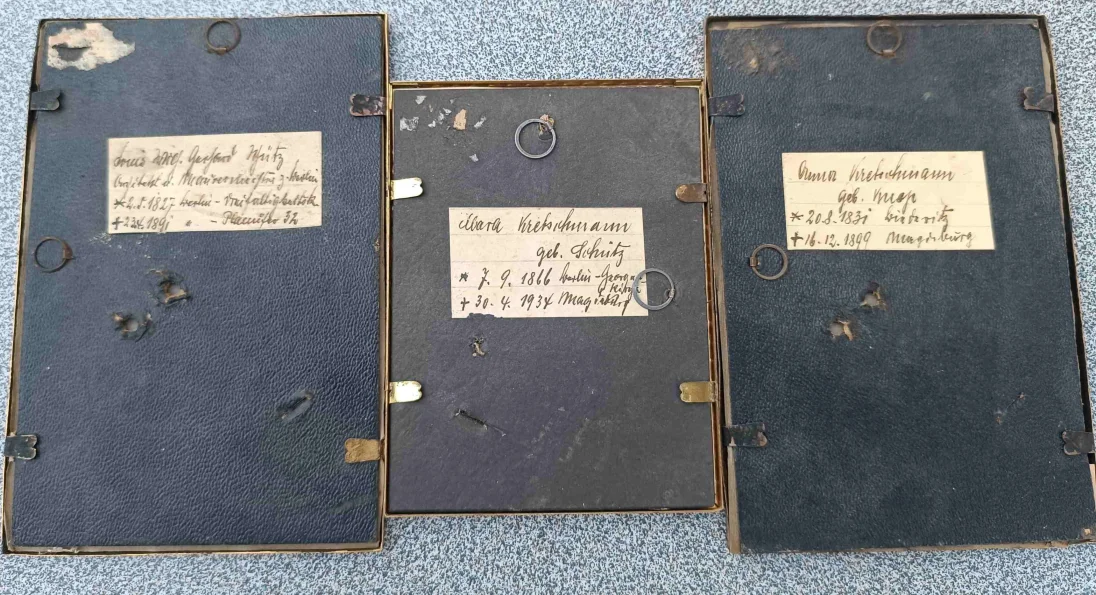 Louis Wilh. Gerhard Schütz
Architekt u. Maurermeister z. Berlin
* 2.8.1827 Berlin - Dreifaltigkeitskirche
+ 23.4.1891 " - Planufer 32
Clara Kretschmann
geb. Schütz
* 7. 9. 1866 Berlin - Georgen
Kirche
+ 30. 4. 1934 Magdeburg
Anna Kretschmann
geb.
* 20.8.1831
+ 16.12.1899 Magdeburg